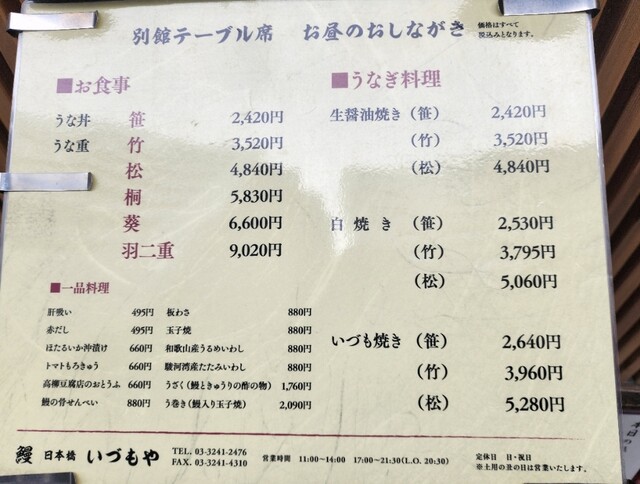 別館テーブル席 お昼のおしながき 価格はすべて
税込みとなります。
■お食事
うな丼 笹 2,420円
うな重 竹 3,520円
松 4,840円
桐 5,830円
葵 6,600円
羽二重 9,020円
■一品料理
肝吸い 495円 板わさ 880円
赤だし 495円 玉子焼 880円
ほたるいか沖漬け 660円 和歌山産うるめいわし 880円
トマトもろきゅう 660円 駿河湾産たたみいわし 880円
高柳豆腐店のおとうふ 660円 うざく(鰻ときゅうりの酢の物) 1,760円
鰻の骨せんべい 880円 う巻き(鰻入り玉子焼) 2,090円
■うなぎ料理
生醤油焼き(笹) 2,420円
(竹) 3,520円
(松) 4,840円
白焼き(笹) 2,530円
(竹) 3,795円
(松) 5,060円
いづも焼き(笹) 2,640円
(竹) 3,960円
(松) 5,280円
鰻 日本橋 いづもや TEL. 03-3241-2476
FAX. 03-3241-4310
営業時間 11:00〜14:00 17:00〜21:30(L.O. 20:30)
定休日 日・祝日
※土用の丑の日は営業いたします。